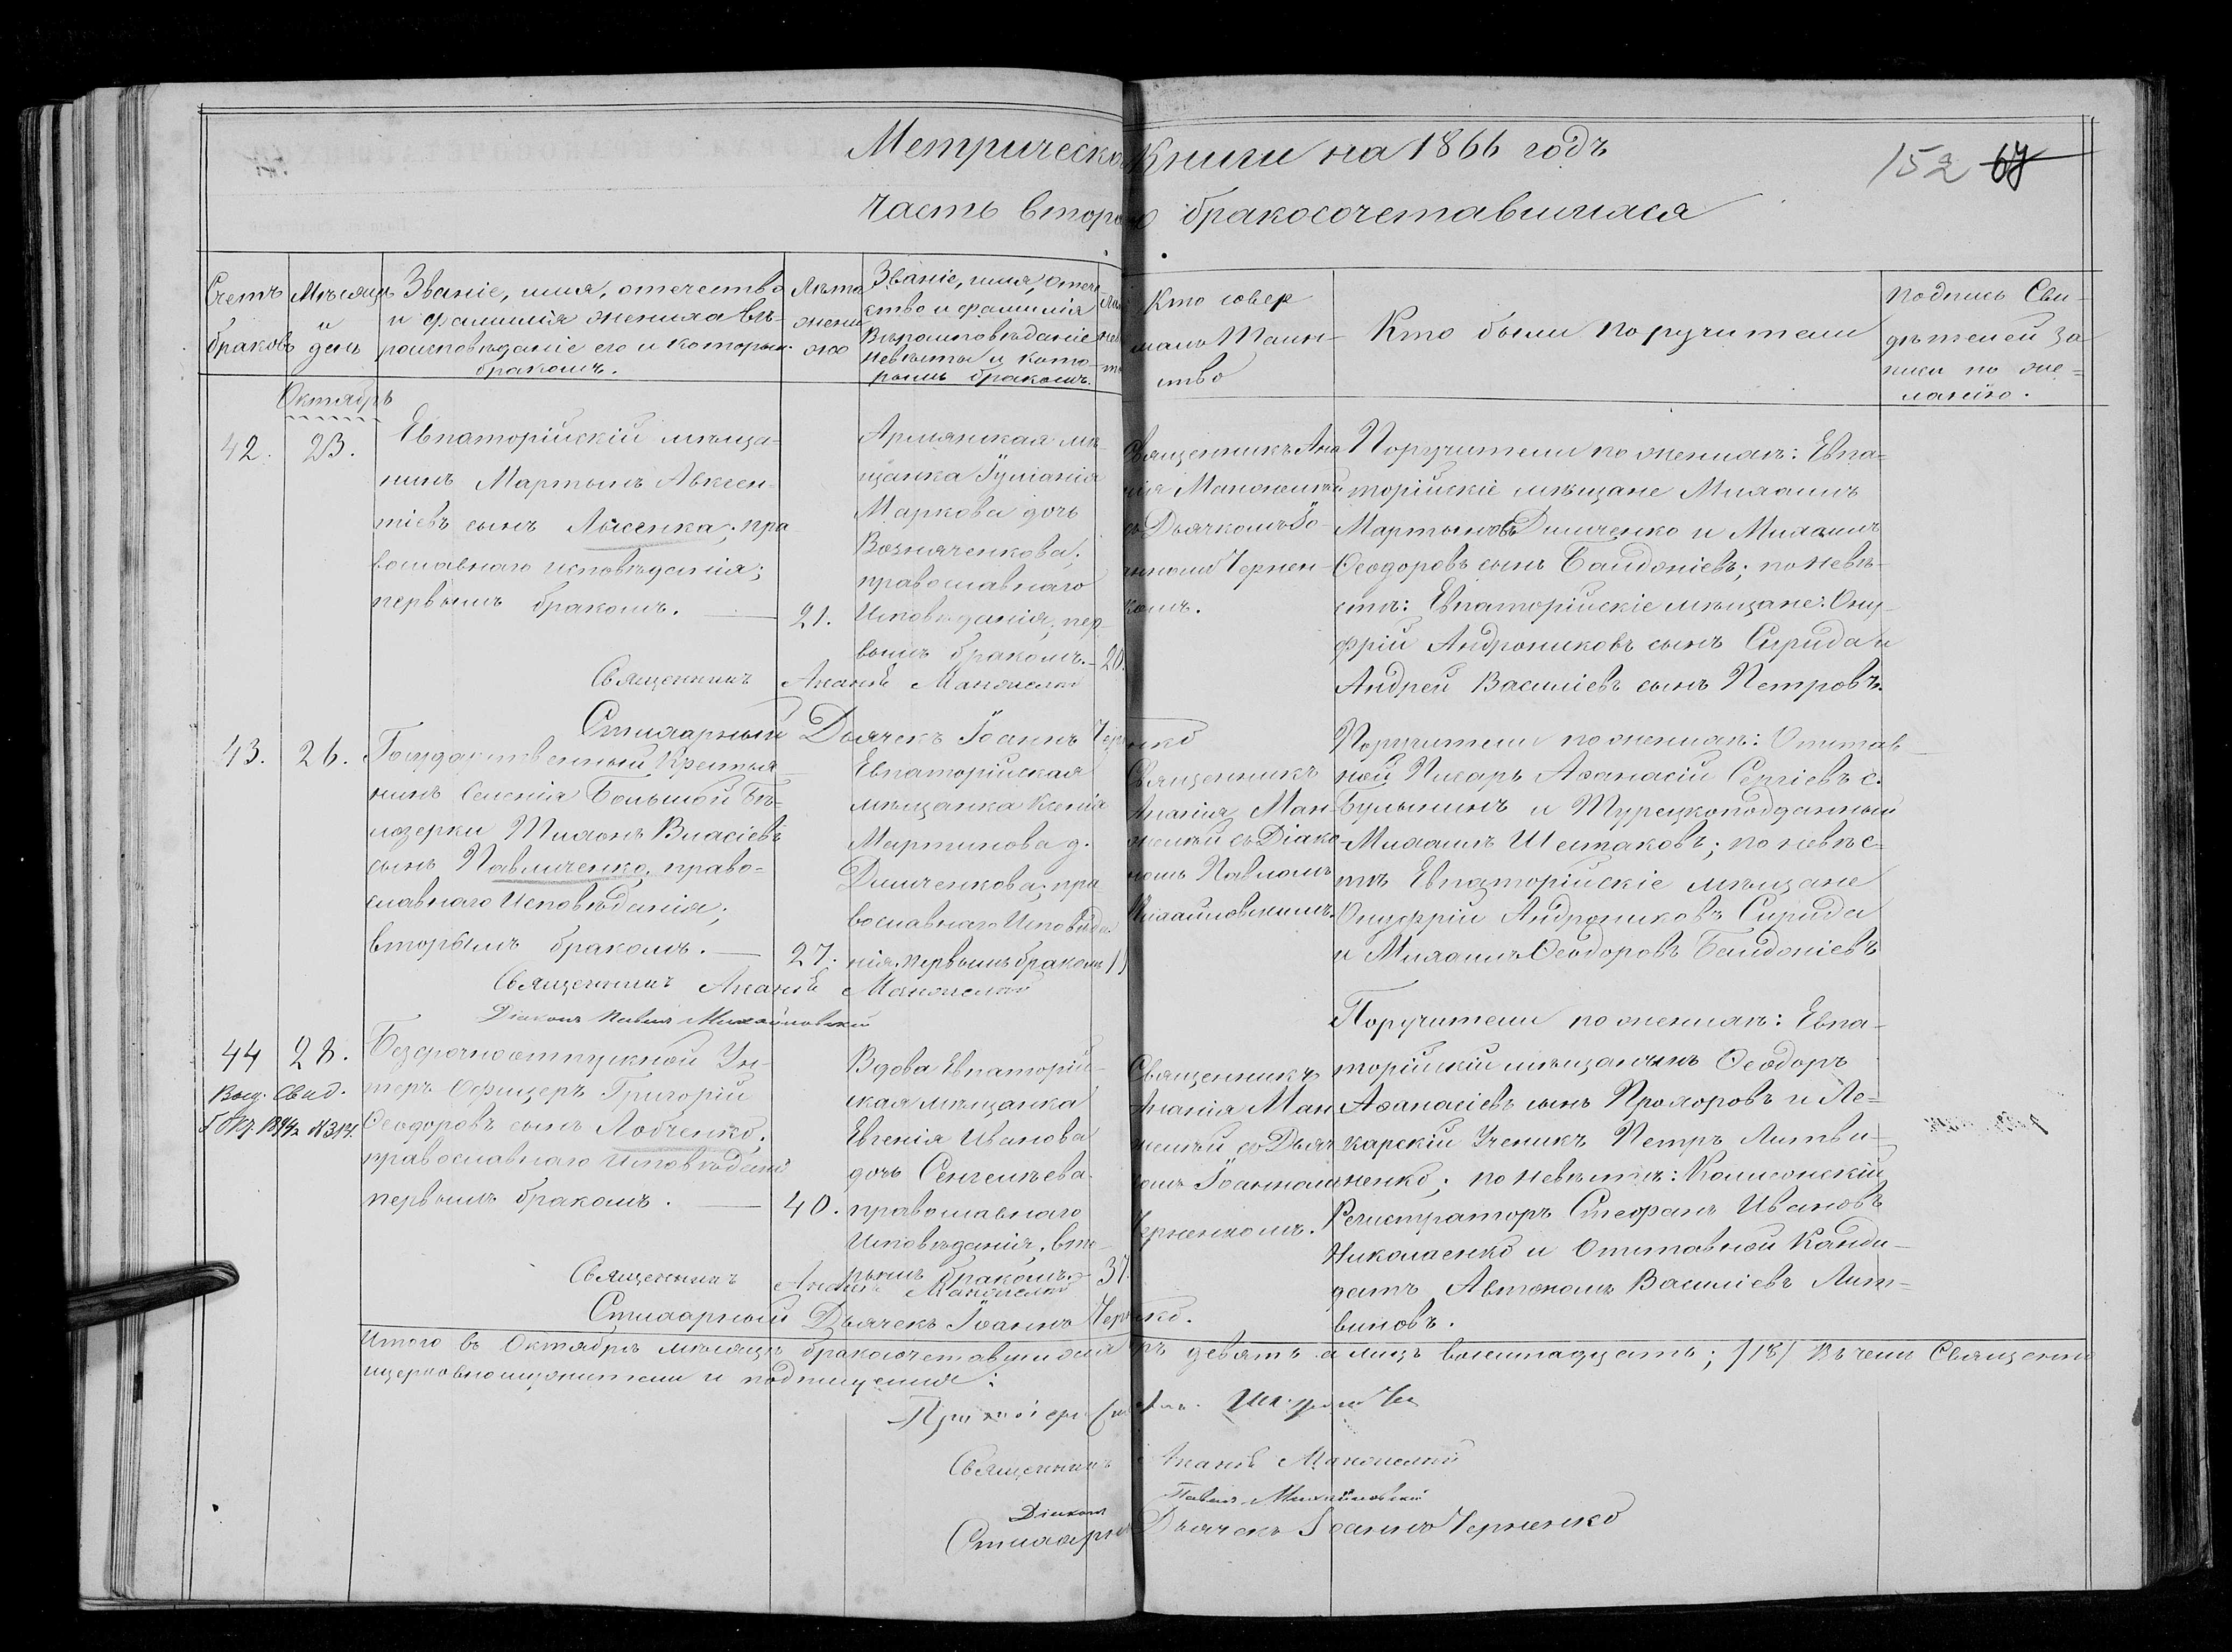 Метрической Книги на 1866 годъ
152 67
часть вторая о бракосочетавшихся
Счетъ
браковъ
Мѣсяцъ
и
день
Званіе, имя, отечество
и фамилія жениха вѣ-
роисповѣданіе его и которым
бракомъ.
Лѣта
жени-
ха
Званіе, имя, отече
ство и фамилія
Вѣроисповѣданіе
невѣсты и кото-
рымъ бракомъ.
Кто совер
шалъ Таин-
ство
Кто были поручители
подпись Сви-
дѣтелей за
писи по же-
ланію.
Октябрь
42.
23.
Евпаторійскій мѣща-
нинъ Мартынъ Авксен-
тіевъ сынъ Лысенка; пра
вославнаго исповѣданія;
первымъ бракомъ.
21.
Армянская мѣ
щанка Іуліанія
Маркова дочь
Возняченкова;
православнаго
Исповѣданія; пер-
вымъ бракомъ.
20.
Священникъ Ана
нія Манжелѣй
съ Дьячкомъ Іо-
анномъ Чернен-
комъ.
Поручители по женихѣ: Евпа-
торійскіе мѣщане Михаилъ
Мартыновъ Димченко и Михаилъ
Ѳеодоровъ сынъ Баидоніевъ; по невѣ-
стѣ: Евпаторійскіе мѣщане: Ону-
фрій Андрониковъ сынъ Сирида и
Андрей Василіевъ сынъ Петровъ.
Священникъ Ананія Манжелей
Стихарный Дьячекъ Іоаннъ Черненко
43.
26.
Государственный Крестья
нинъ Селенія Большой Бѣ-
лозерки Тихонъ Власіевъ
сынъ Павличенко, право-
славнаго Исповѣданія;
вторымъ бракомъ.
27.
Евпаторійская
мѣщанка Ксенія
Мартинова д.
Димченкова; пра
вославнаго Исповѣда
нія, первымъ бракомъ
Священникъ
Ананія Ман-
желѣй съ Діако-
номъ Павломъ
Михайловскимъ.
Поручители по женихѣ: Отстав
ной Писарь Аѳанасій Сергіевъ с.
Булынинъ и Турецкоподданный
Михаилъ Шестаковъ; по невѣс-
тѣ Евпаторійскіе мѣщане
Онуфрій Андрониковъ Сирида
и Михаилъ Ѳеодоровъ Баидоніевъ
Священникъ Ананія Манжелей
Діаконъ Павелъ Михайловскій
44
28.
Выд. Свид.
№ 314.
Безсрочноотпускной Ун-
теръ Офицеръ Григорій
Ѳеодоровъ сынъ Лобченко,
православнаго Исповѣданія
первымъ бракомъ.
40.
Вдова Евпаторій-
ская мѣщанка
Евгенія Иванова
дочь Сенгелѣева.
православнаго
Исповѣданія, вто-
рымъ бракомъ.
37.
Священникъ
Ананія Ман
желѣй со Дьяч
комъ Іоанномъ
Черненкомъ.
Поручители по женихѣ: Евпа-
торійскій мѣщанинъ Ѳеодоръ
Аѳанасіевъ сынъ Прохоровъ и Ле-
карскій Ученикъ Петръ Литви-
ненко; по невѣстѣ: Коллежскій
Регистраторъ Стефанъ Ивановъ
Николаенко и Отставной Канди-
датъ Автономъ Василіевъ Лит-
виновъ.
Священникъ Ананія Манжелей
Стихарный Дьячекъ Іоаннъ Черненко.
Итого въ Октябрѣ мѣсяцѣ бракосочетавшихся паръ девять а лицъ восемнадцать; /18/ Въ чемъ Священно
ицерковнослужители и подпишемся:
Протоіерей
Священникъ Ананія Манжелей
Діаконъ Павелъ Михайловскій
Стихарный Дьячекъ Іоаннъ Черненко